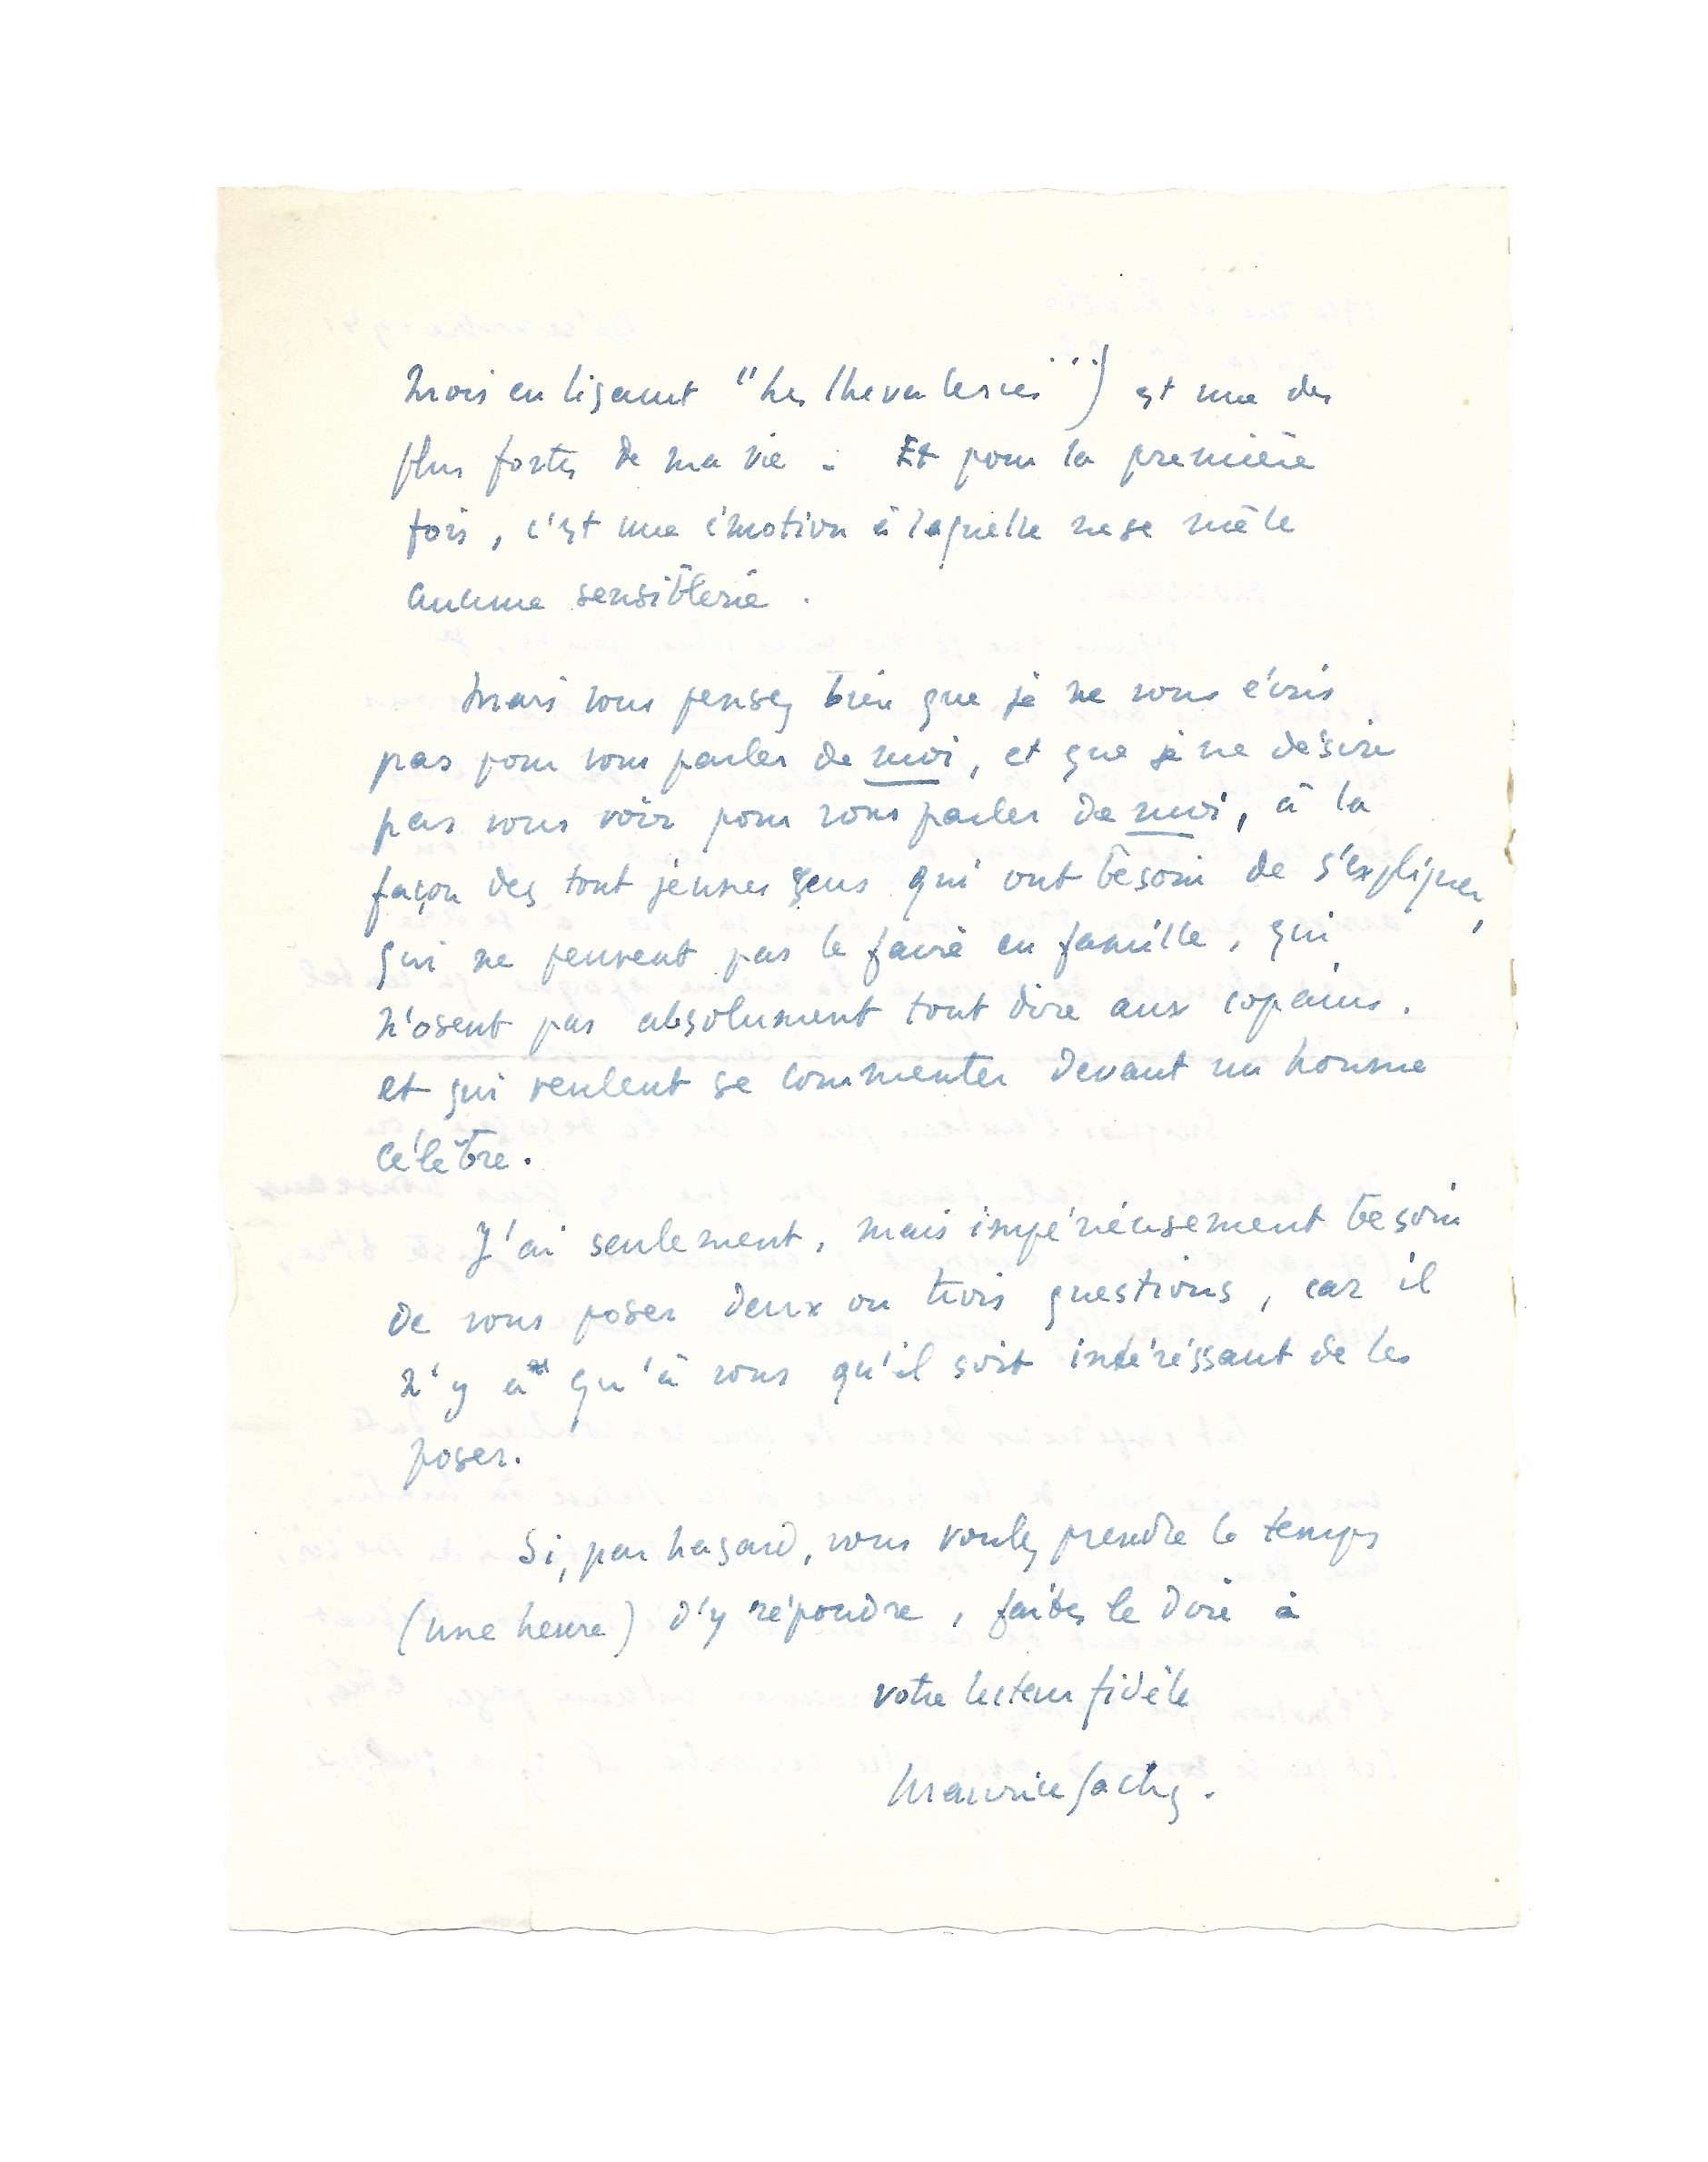 mois en lisant "Les Chevaleries...) est une des
plus fortes de ma vie. Et pour la première
fois, c'est une émotion à laquelle ne se mêle
aucune sensiblerie.
Mais vous pensez bien que je ne vous écris
pas pour vous parler de moi, et que je ne désire
pas vous voir pour vous parler de moi, à la
façon des tout jeunes gens qui ont besoin de s'expliquer,
qui ne peuvent pas le faire en famille, qui
n'osent pas absolument tout dire aux copains.
et qui veulent se commenter devant un homme
célèbre.
J'ai seulement, mais impérieusement besoin
de vous poser deux ou trois questions, car il
n'y a qu'à vous qu'il soit intéressant de les
poser.
Si, par hasard, vous voulez prendre le temps
(une heure) d'y répondre, faites le dire à
votre lecteur fidèle
Maurice Sachs.